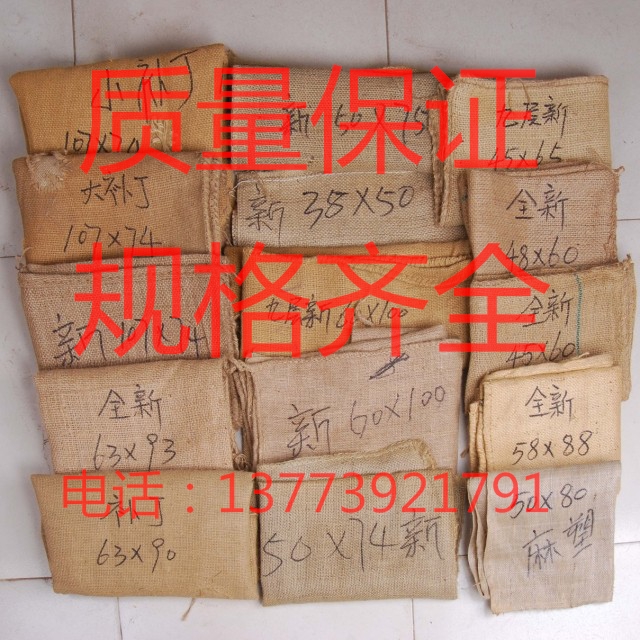 质量保证
规格齐全
电话：13773921791
小补丁
107×74
大补丁
107×74
新107×74
全新
63×93
补丁
63×90
新50×75
新38×50
九层新66×100
新60×100
50×74新
九层新
45×65
全新
48×60
全新
45×60
全新
58×88
50×80
麻塑